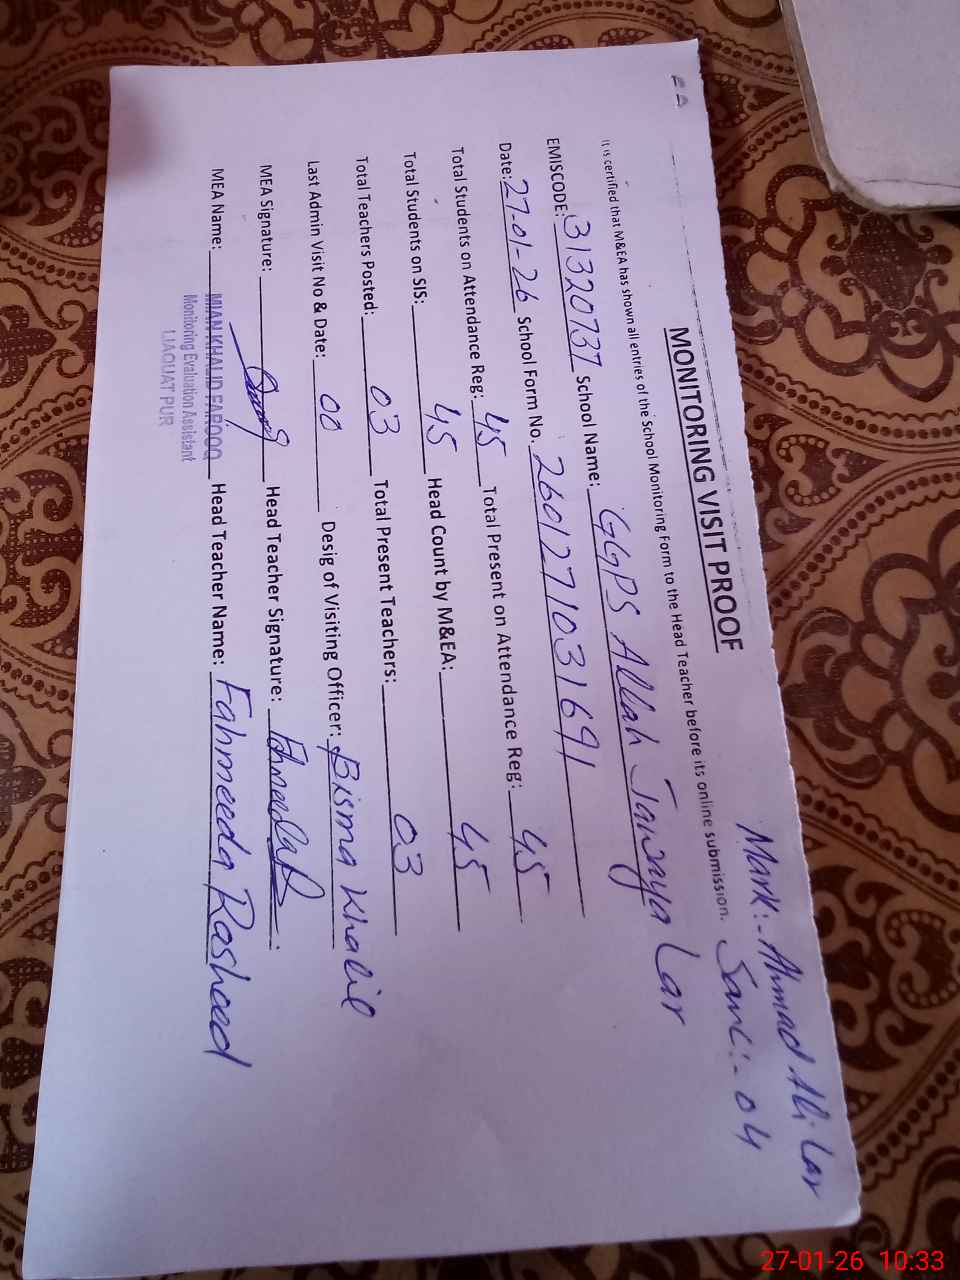 Mark:- Ahmad Ali Lar
Sanc:- 04
MONITORING VISIT PROOF
It is certified that M&EA has shown all entries of the School Monitoring Form to the Head Teacher before its online submission.
EMISCODE: 31320737 School Name: GGPS Allah Jawaya Lar
Date: 27-01-26 School Form No. 2601271031691
Total Students on Attendance Reg: 45 Total Present on Attendance Reg: 45
Total Students on SIS: 45 Head Count by M&EA: 45
Total Teachers Posted: 03 Total Present Teachers: 03
Last Admin Visit No & Date: 00 Desig of Visiting Officer: Bisma Khalil
MEA Signature: Head Teacher Signature:
MEA Name: MIAN KHALID FAROOQ Head Teacher Name: Fahmeeda Rasheed
Monitoring Evaluation Assistant
LIAQUAT PUR
27-01-26 10:33